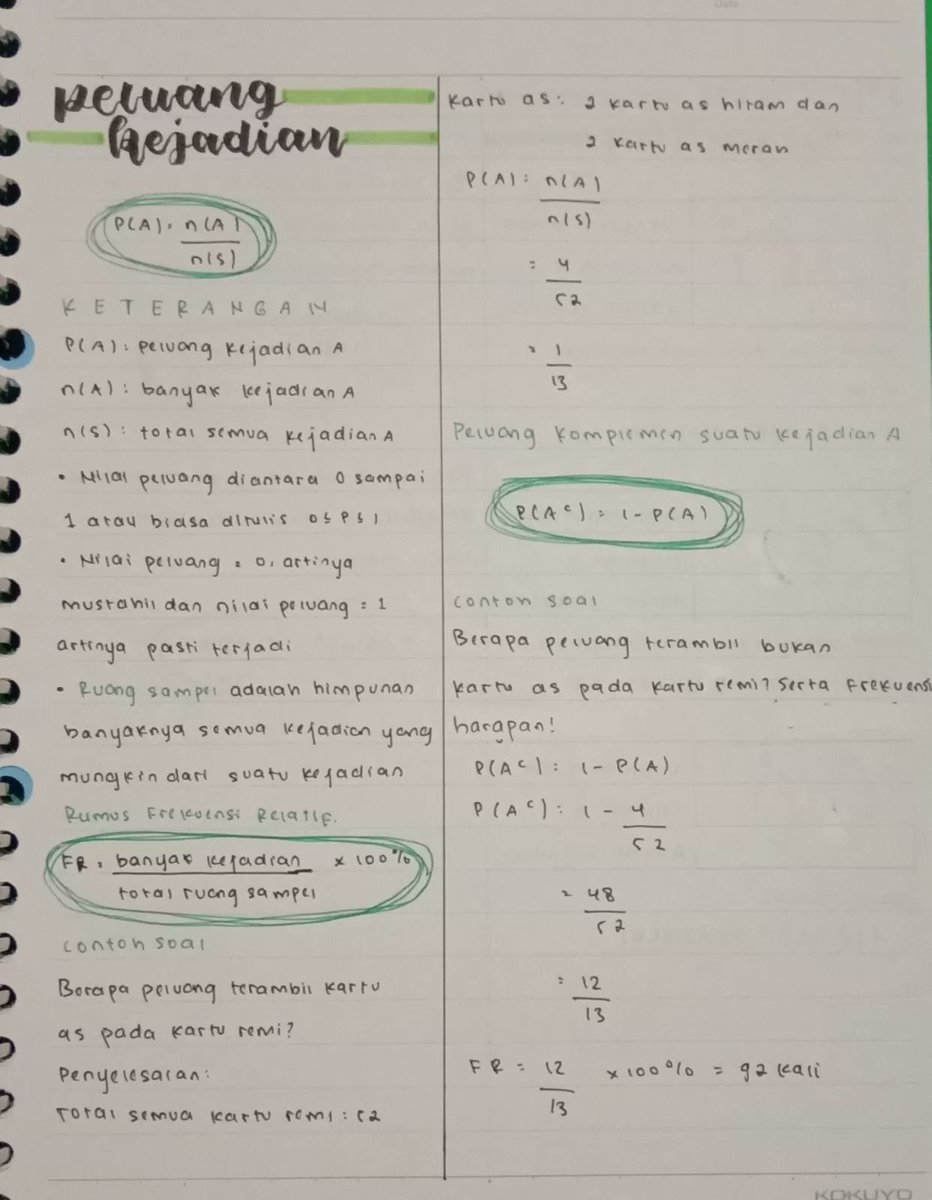 Date
peluang
kejadian
P(A) = n(A)
n(S)
KETERANGAN
P(A) : peluang kejadian A
n(A) : banyak kejadian A
n(S) : total semua kejadian A
• Nilai peluang diantara 0 sampai
1 atau biasa ditulis 0≤P≤1
• Nilai peluang = 0, artinya
mustahil dan nilai peluang = 1
artinya pasti terjadi
• Ruang sampel adalah himpunan
banyaknya semua kejadian yang
mungkin dari suatu kejadian
Rumus Frekuensi Relatif.
FR = banyak kejadian × 100%
total ruang sampel
contoh soal
Berapa peluang terambil kartu
as pada kartu remi?
Penyelesaian:
Total semua kartu remi : 52
Kartu as : 2 kartu as hitam dan
2 kartu as merah
P(A) = n(A)
n(S)
= 4
52
= 1
13
Peluang Komplemen suatu kejadian A
P(Aᶜ) = 1 - P(A)
contoh soal
Berapa peluang terambil bukan
kartu as pada kartu remi? Serta Frekuensi
harapan!
P(Aᶜ) = 1 - P(A)
P(Aᶜ) = 1 - 4
52
= 48
52
= 12
13
FR = 12 × 100% = 92 kali
13
KOKUYO